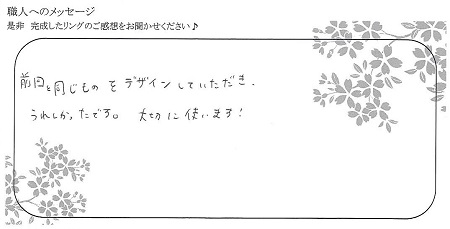 職人へのメッセージ
是非 完成したリングのご感想をお聞かせください♪
前回と同じものをデザインしていただき、
うれしかったです。 大切に使います!